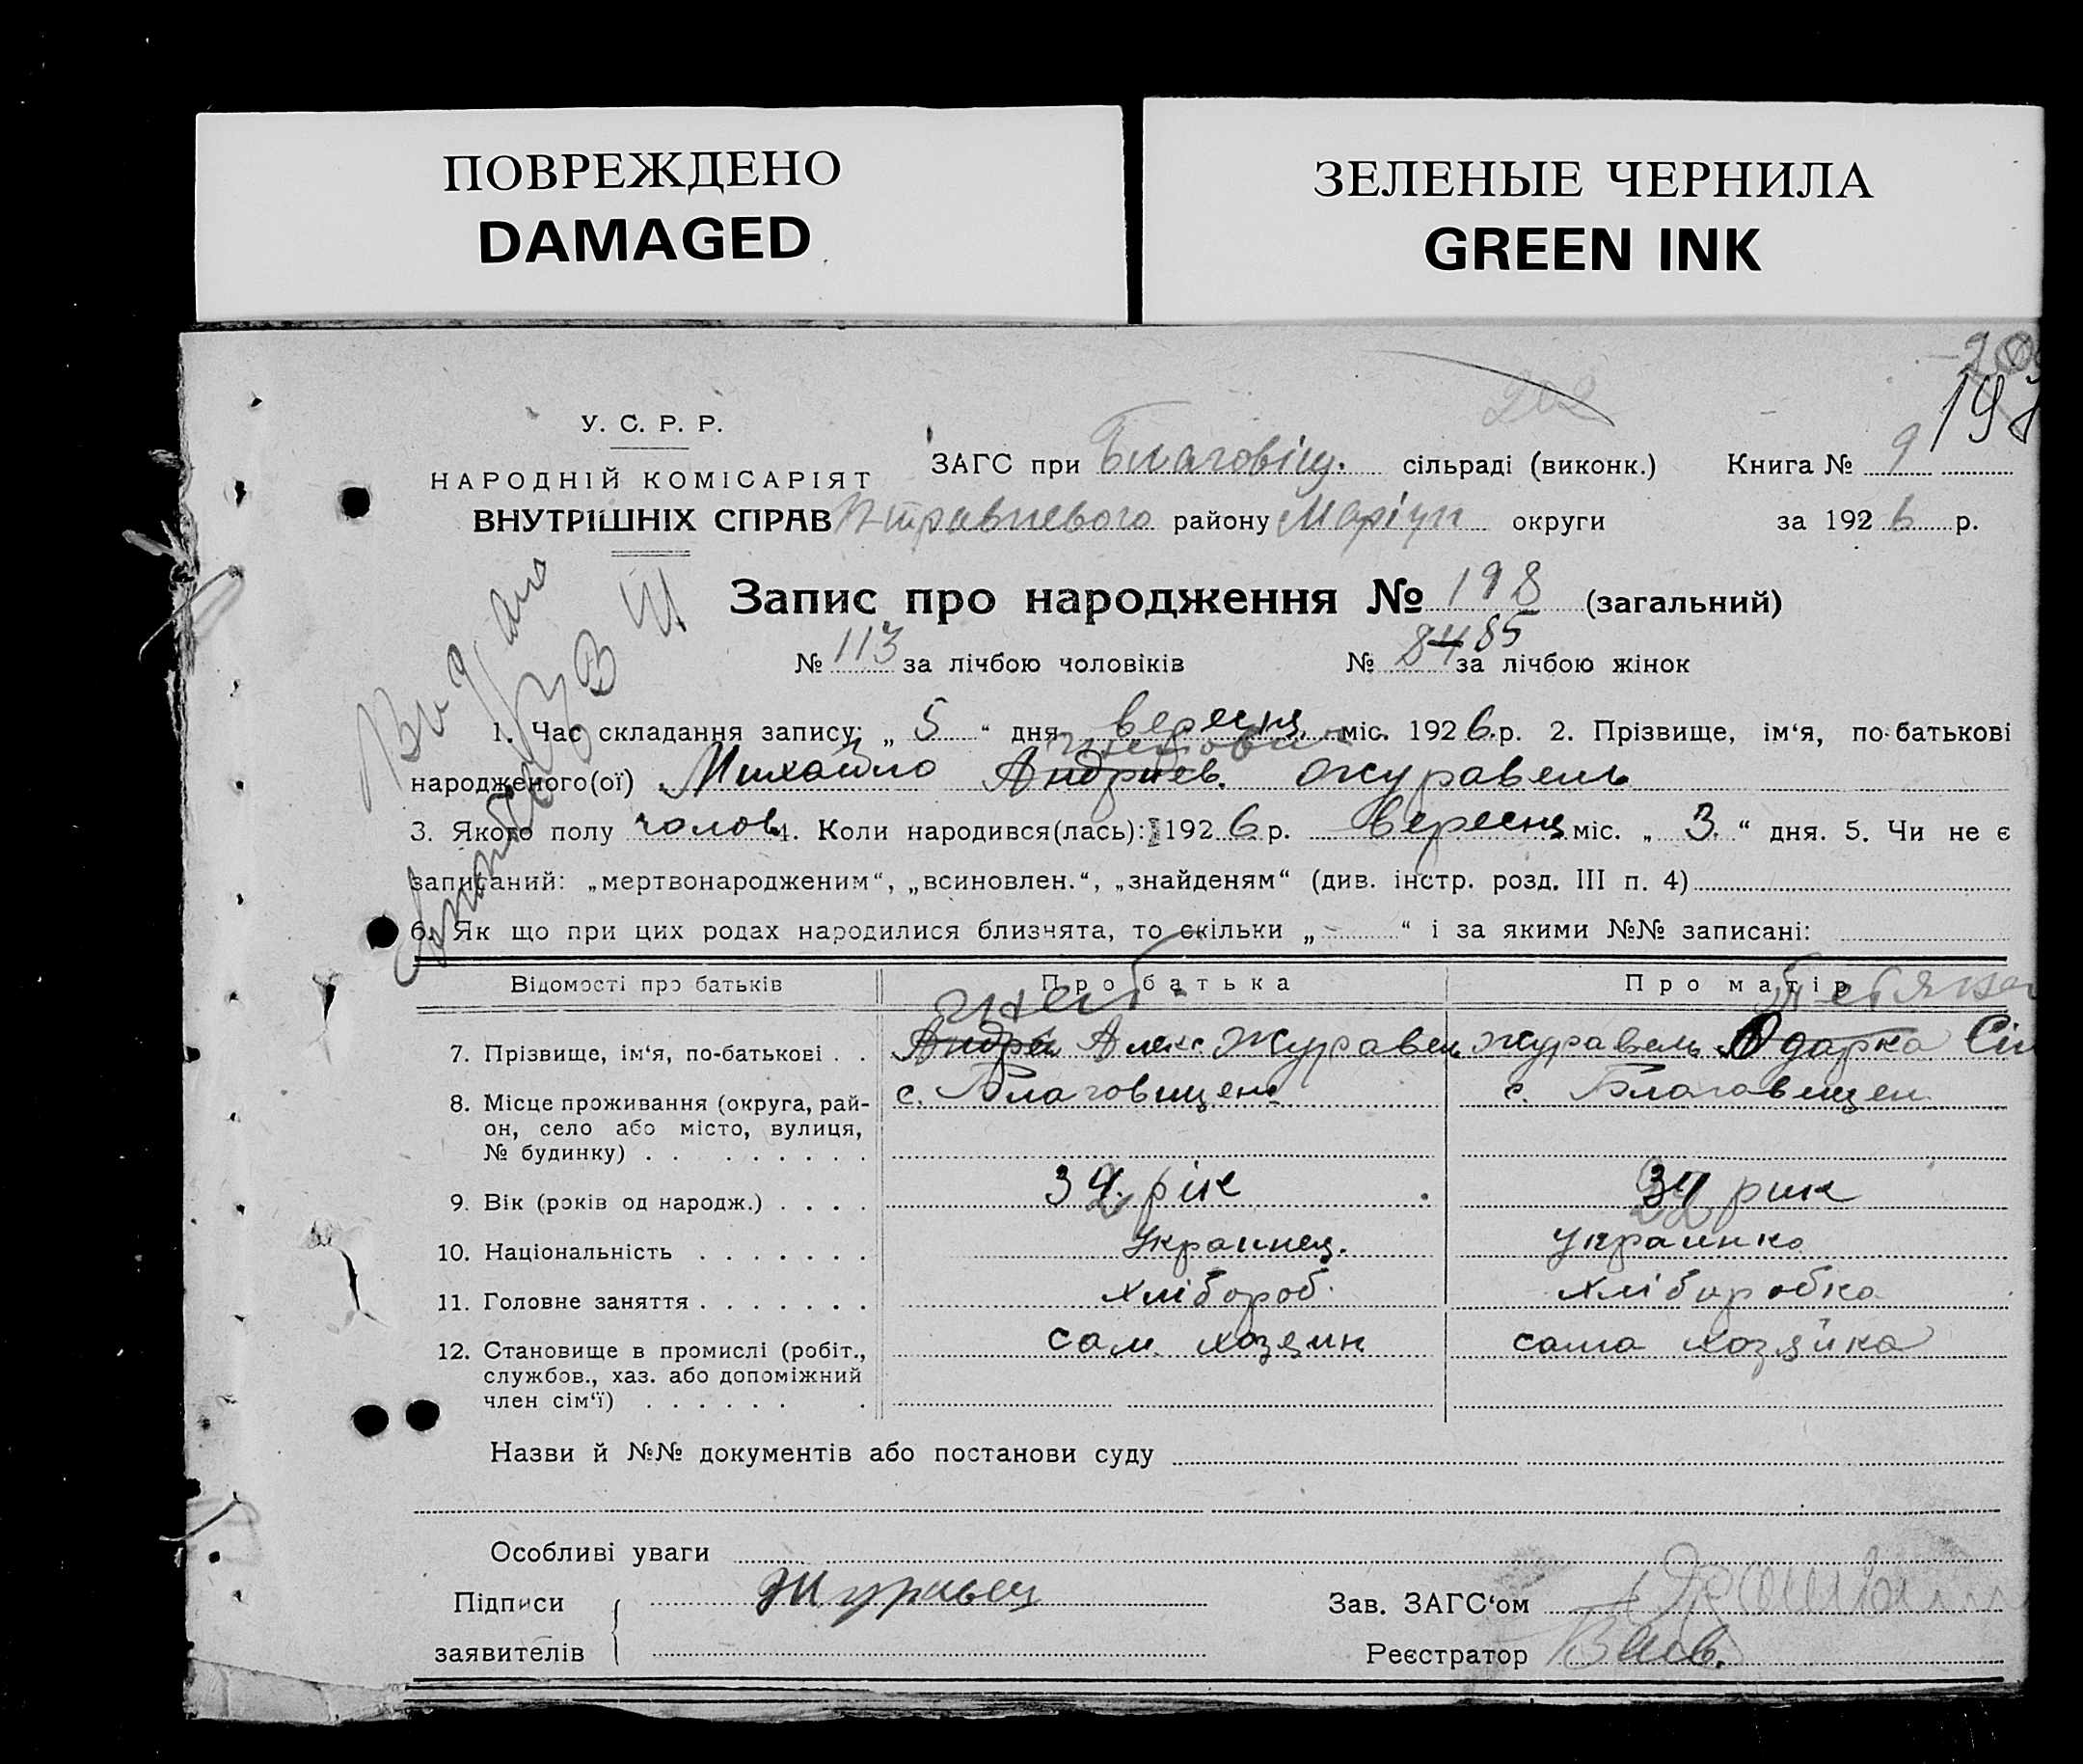 ПОВРЕЖДЕНО
DAMAGED
ЗЕЛЕНЫЕ ЧЕРНИЛА
GREEN INK
202
У. С. Р. Р.
НАРОДНІЙ КОМІСАРІЯТ
ВНУТРІШНІХ СПРАВ
ЗАГС при Благовіщ. сільраді (виконк.) Книга № 9
района Маріуп округи за 1926 р.
Запис про народження № 198 (загальний)
№ 113 за лічбою чоловіків № 84 85 за лічбою жінок
Видано
1. Час складання запису: „ 5 “ дня вересня міс. 1926 р. 2. Прізвище, ім‘я, по-батькові
народженого(ої) Михайло Андріев. Журавель
3. Якого полу чолов. 4. Коли народився(лась): 1926 р. вересня міс. „ 3 “ дня. 5. Чи не є
записаний: „мертвонародженим“, „всиновлен.“, „знайденям“ (див. інстр. розд. III п. 4)
6. Як що при цих родах народилися близнята, то скільки „ “ і за якими №№ записані:
Відомості про батьків Про батька Про матір
7. Прізвище, ім‘я, по-батькові . . Андрій Алекс Журавель Журавель Одарка
8. Місце проживання (округа, рай- с. Благовищен с. Благовищен
он, село або місто, вулиця,
№ будинку) . . . . . . . . .
9. Вік (років од народж.) . . . . 34 рік 34 рик
10. Національність . . . . . . . Украинец. Украинка
11. Головне заняття . . . . . . . хлібороб. хліборобка
12. Становище в промислі (робіт., сам хозяин сама хозяйка
службов., хаз. або допоміжний
член сім‘ї) . . . . . . .
Назви й №№ документів або постанови суду
Особливі уваги
Підписи Журавель Зав. ЗАГС‘ом
заявителів Реєстратор